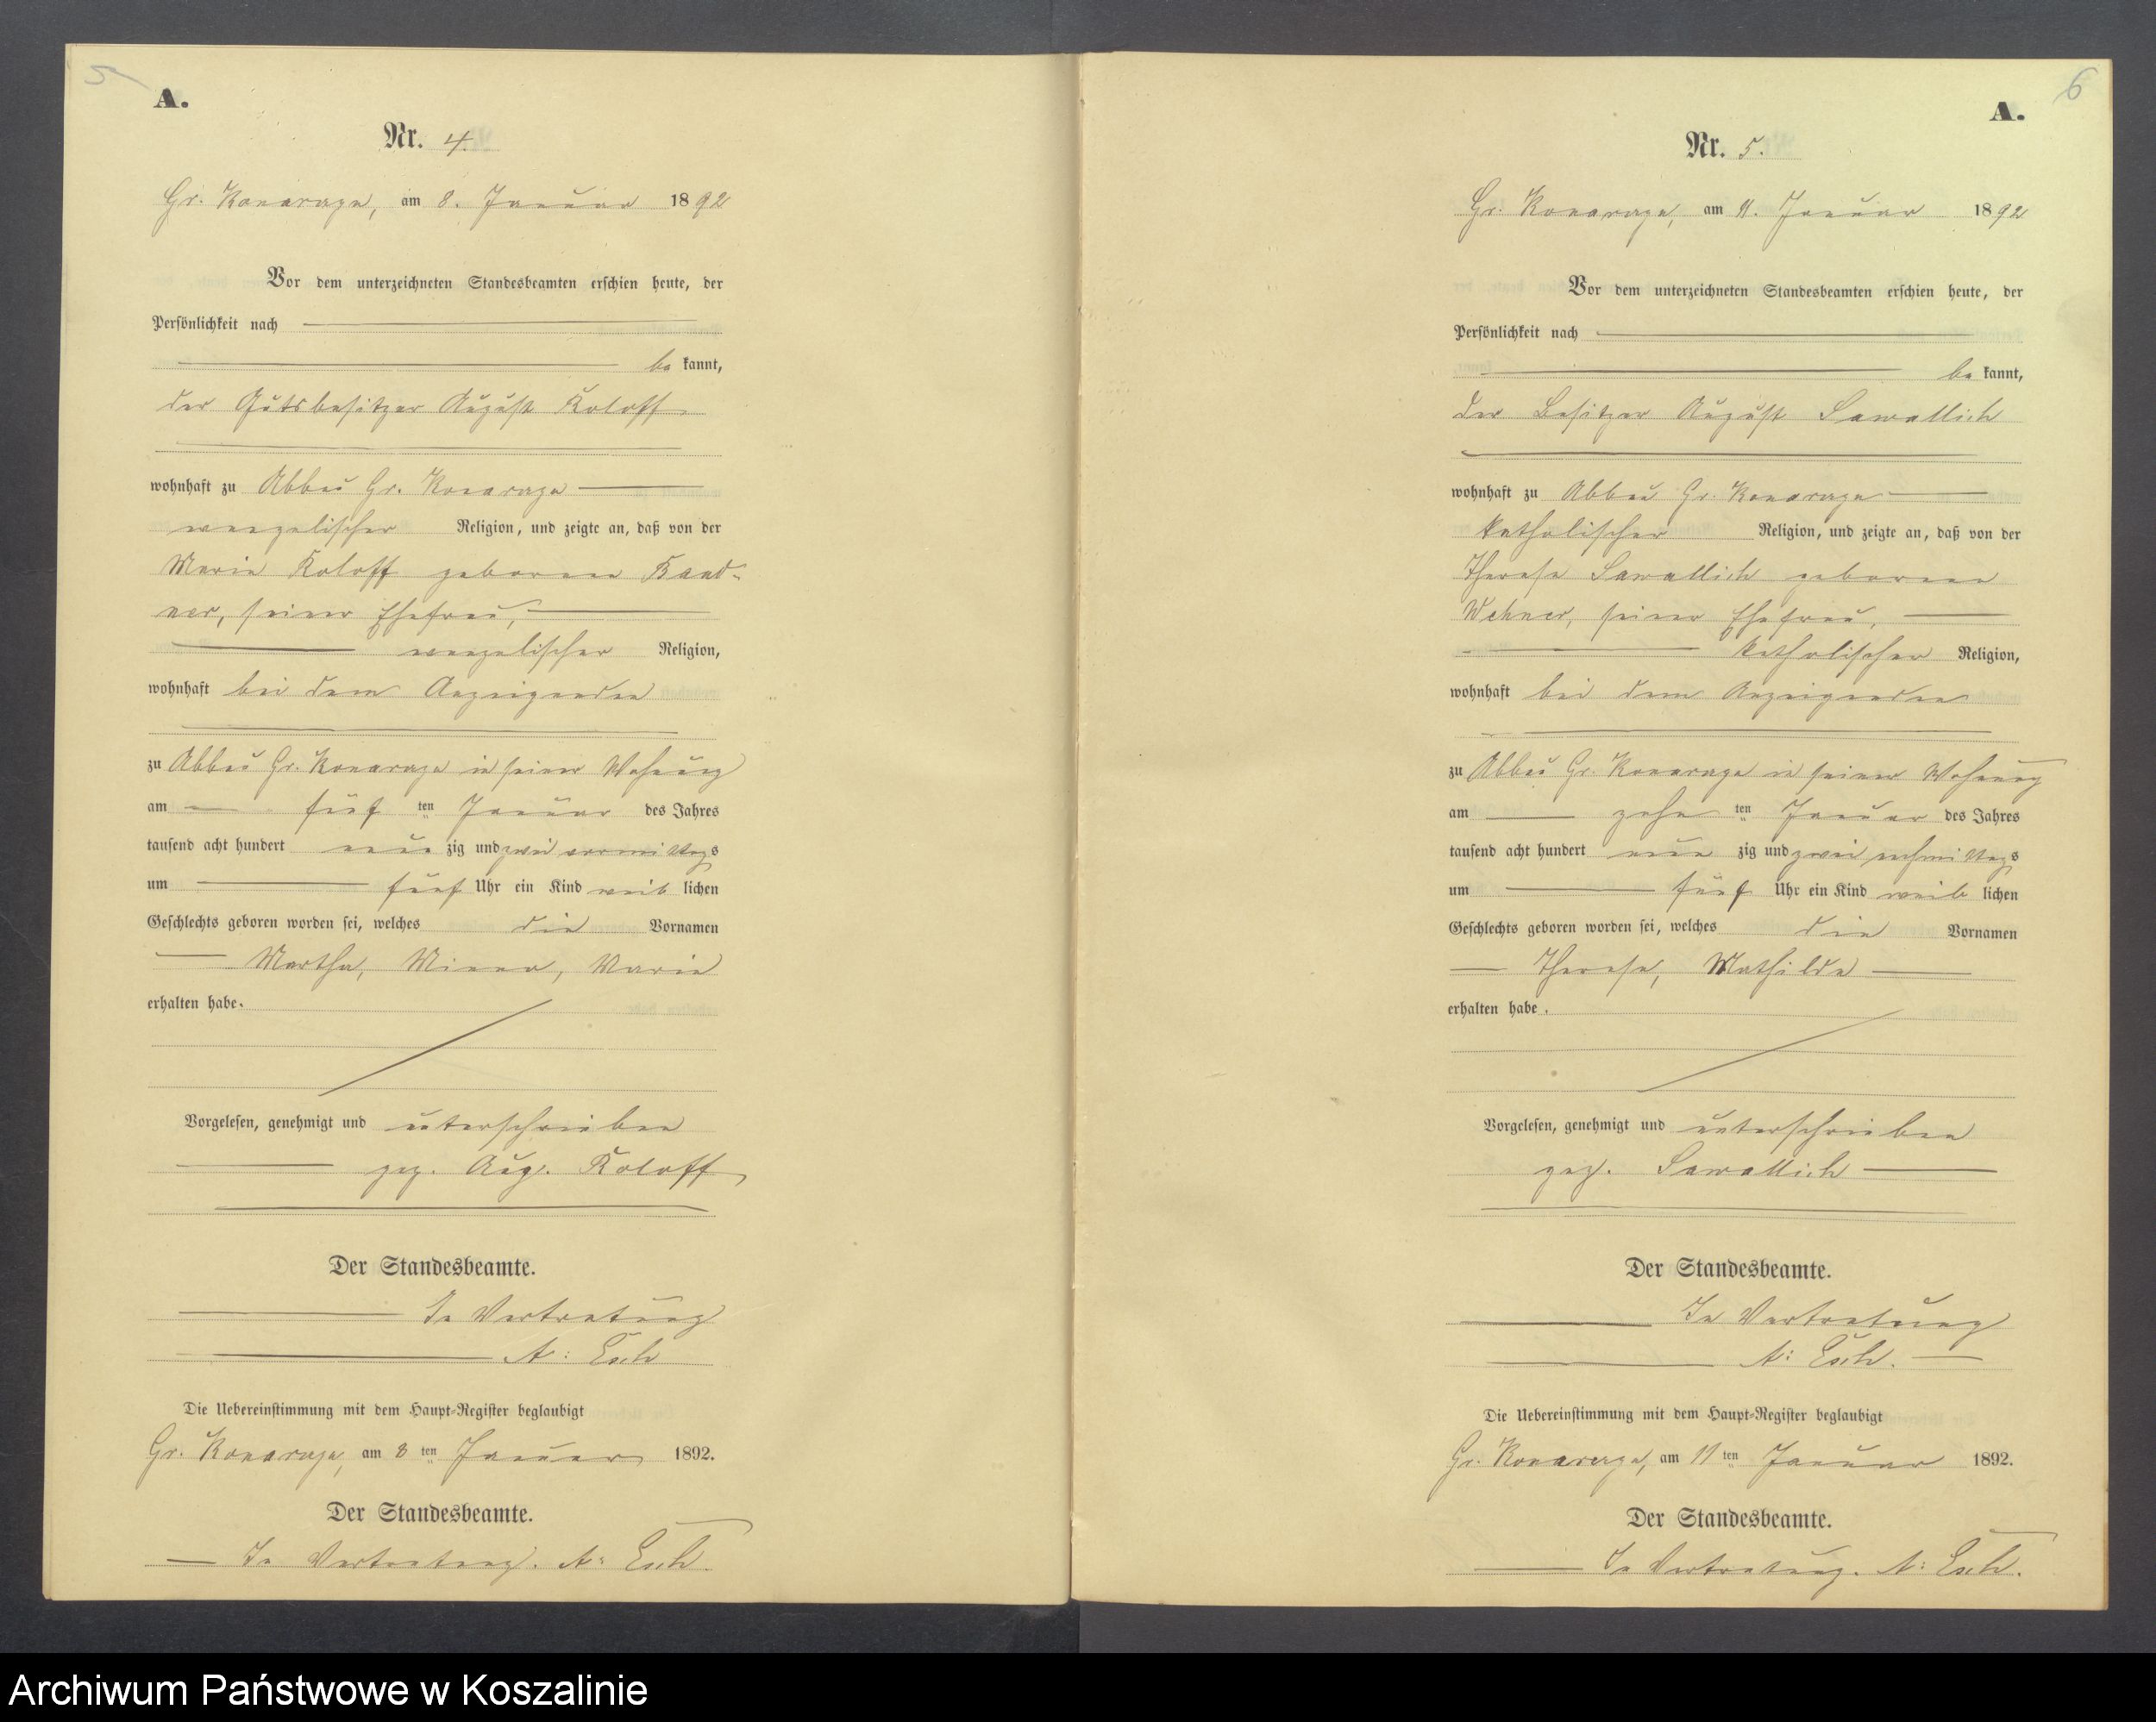 5
A.
Nr. 4.
Gr. Konarzyn, am 8. Januar 1892
Vor dem unterzeichneten Standesbeamten erschien heute, der
Persönlichkeit nach
be kannt,
der Gutsbesitzer August Koloff
wohnhaft zu Abbau Gr. Konarzyn
evangelischer Religion, und zeigte an, daß von der
Marie Koloff geborene
seiner Ehefrau,
evangelischer Religion,
wohnhaft bei dem Anzeigenden
zu Abbau Gr. Konarzyn in seiner Wohnung
am fünf ten Januar des Jahres
tausend acht hundert neun zig und zwei vormittags
um fünf Uhr ein Kind weib lichen
Geschlechts geboren worden sei, welches die Vornamen
Martha, Minna, Marie
erhalten habe.
Vorgelesen, genehmigt und unterschrieben
gez. Aug. Koloff
Der Standesbeamte.
In Vertretung
A: Esch
Die Uebereinstimmung mit dem Haupt-Register beglaubigt
Gr. Konarzyn, am 8 ten Januar 1892.
Der Standesbeamte.
In Vertretung. A: Esch.
6
A.
Nr. 5.
Gr. Konarzyn, am 11. Januar 1892
Vor dem unterzeichneten Standesbeamten erschien heute, der
Persönlichkeit nach
be kannt,
der Besitzer August Sawallich
wohnhaft zu Abbau Gr. Konarzyn
katholischer Religion, und zeigte an, daß von der
Therese Sawallich geborene
Wehner, seiner Ehefrau,
katholischer Religion,
wohnhaft bei dem Anzeigenden
zu Abbau Gr. Konarzyn in seiner Wohnung
am zehn ten Januar des Jahres
tausend acht hundert neun zig und zwei nachmittags
um fünf Uhr ein Kind weib lichen
Geschlechts geboren worden sei, welches die Vornamen
Therese, Mathilde
erhalten habe.
Vorgelesen, genehmigt und unterschrieben
gez. Sawallich
Der Standesbeamte.
In Vertretung
A: Esch.
Die Uebereinstimmung mit dem Haupt-Register beglaubigt
Gr. Konarzyn, am 11 ten Januar 1892.
Der Standesbeamte.
In Vertretung. A: Esch.
Archiwum Państwowe w Koszalinie